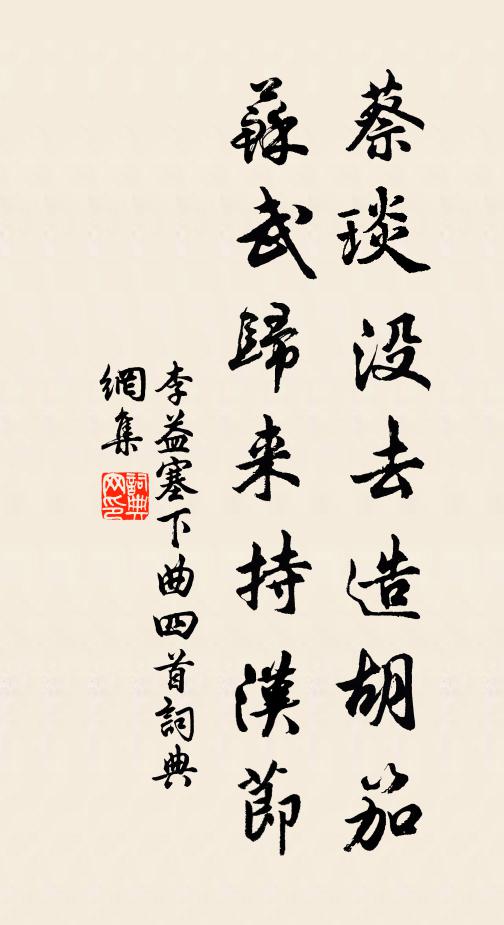 蔡琰没去造胡笳
蘇武歸来持漢節
李益塞下曲四首詞典
網集
詞典
网印